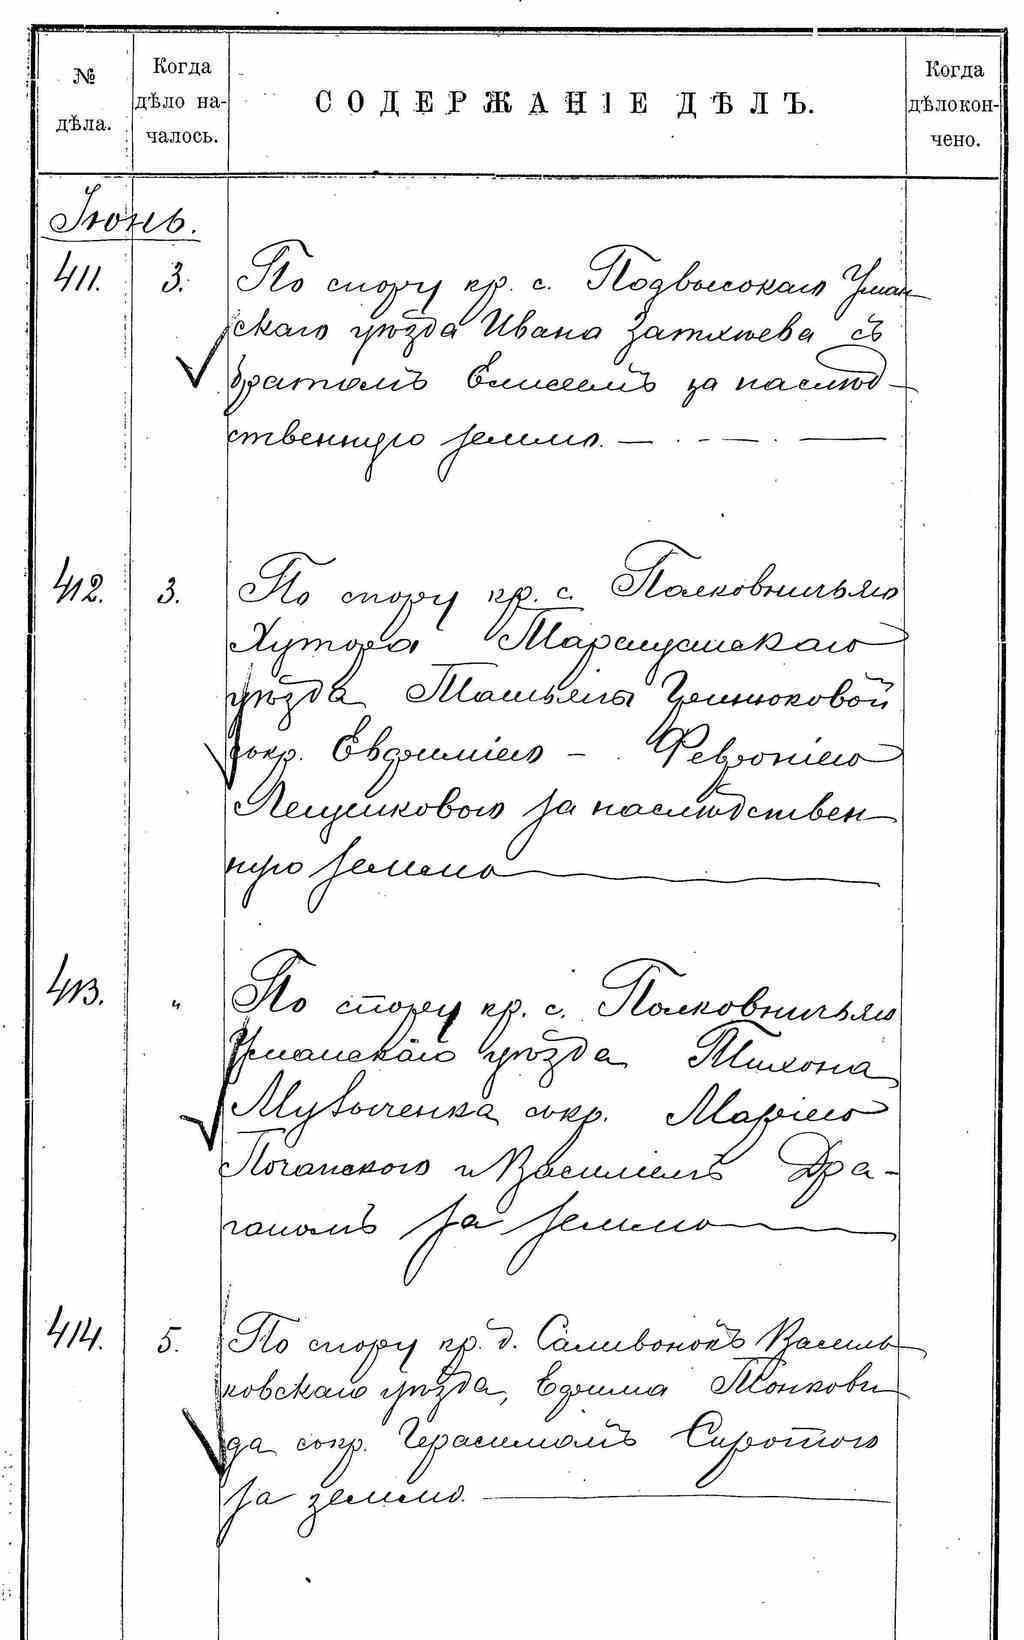 № дѣла.
Когда дѣло на-
чалось.
СОДЕРЖАНІЕ ДѢЛЪ.
Когда дѣло кон-
чено.
Іюнь.
411. 3. По спору кр. с. Подвысокаго Уман
скаго уѣзда Ивана Затхѣева съ
братомъ Елисеемъ за наслѣд-
ственную землю. — . - — . —
412. 3. По спору кр. с. Полковничьяго
Хутора Таращанскаго
уѣзда Татьяны
сокр. Евфиміею - Февроніею
за наслѣдствен
ную землю
413. " По спору кр. с. Полковничьяго
Уманскаго уѣзда Тихона
Музыченка сокр. Маріею
и Василіемъ Дра-
ганомъ за землю
414. 5. По спору кр. д. Саливонокъ Василь
ковскаго уѣзда, Ефима Тонкови
да сокр. Герасимомъ Сиротою
за землю.